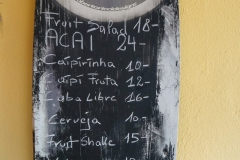 Fruit Salad 18-
AÇAI 24-
Caipirinha 10-
Caipi Fruta 12-
Cuba Libre 16-
Cerveja 10-
Fruit Shake 15-